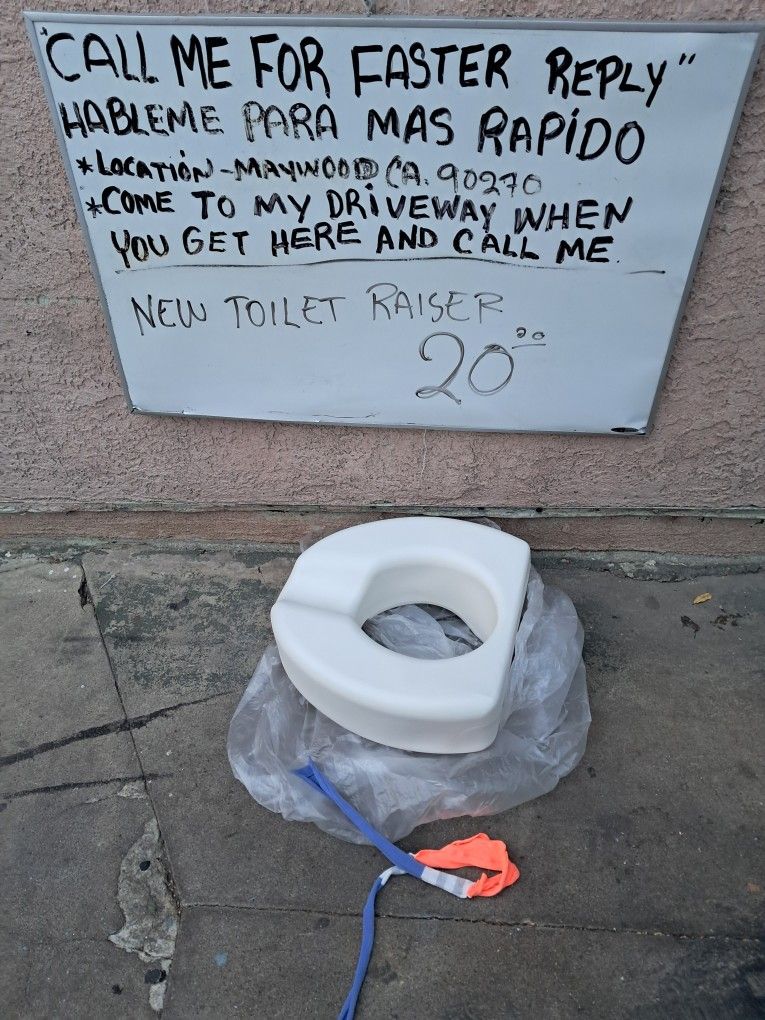 "CALL ME FOR FASTER REPLY"
HABLEME PARA MAS RAPIDO
*LOCATION-MAYWOOD CA. 90270
*COME TO MY DRIVEWAY WHEN
YOU GET HERE AND CALL ME.
NEW TOILET RAISER
20.00